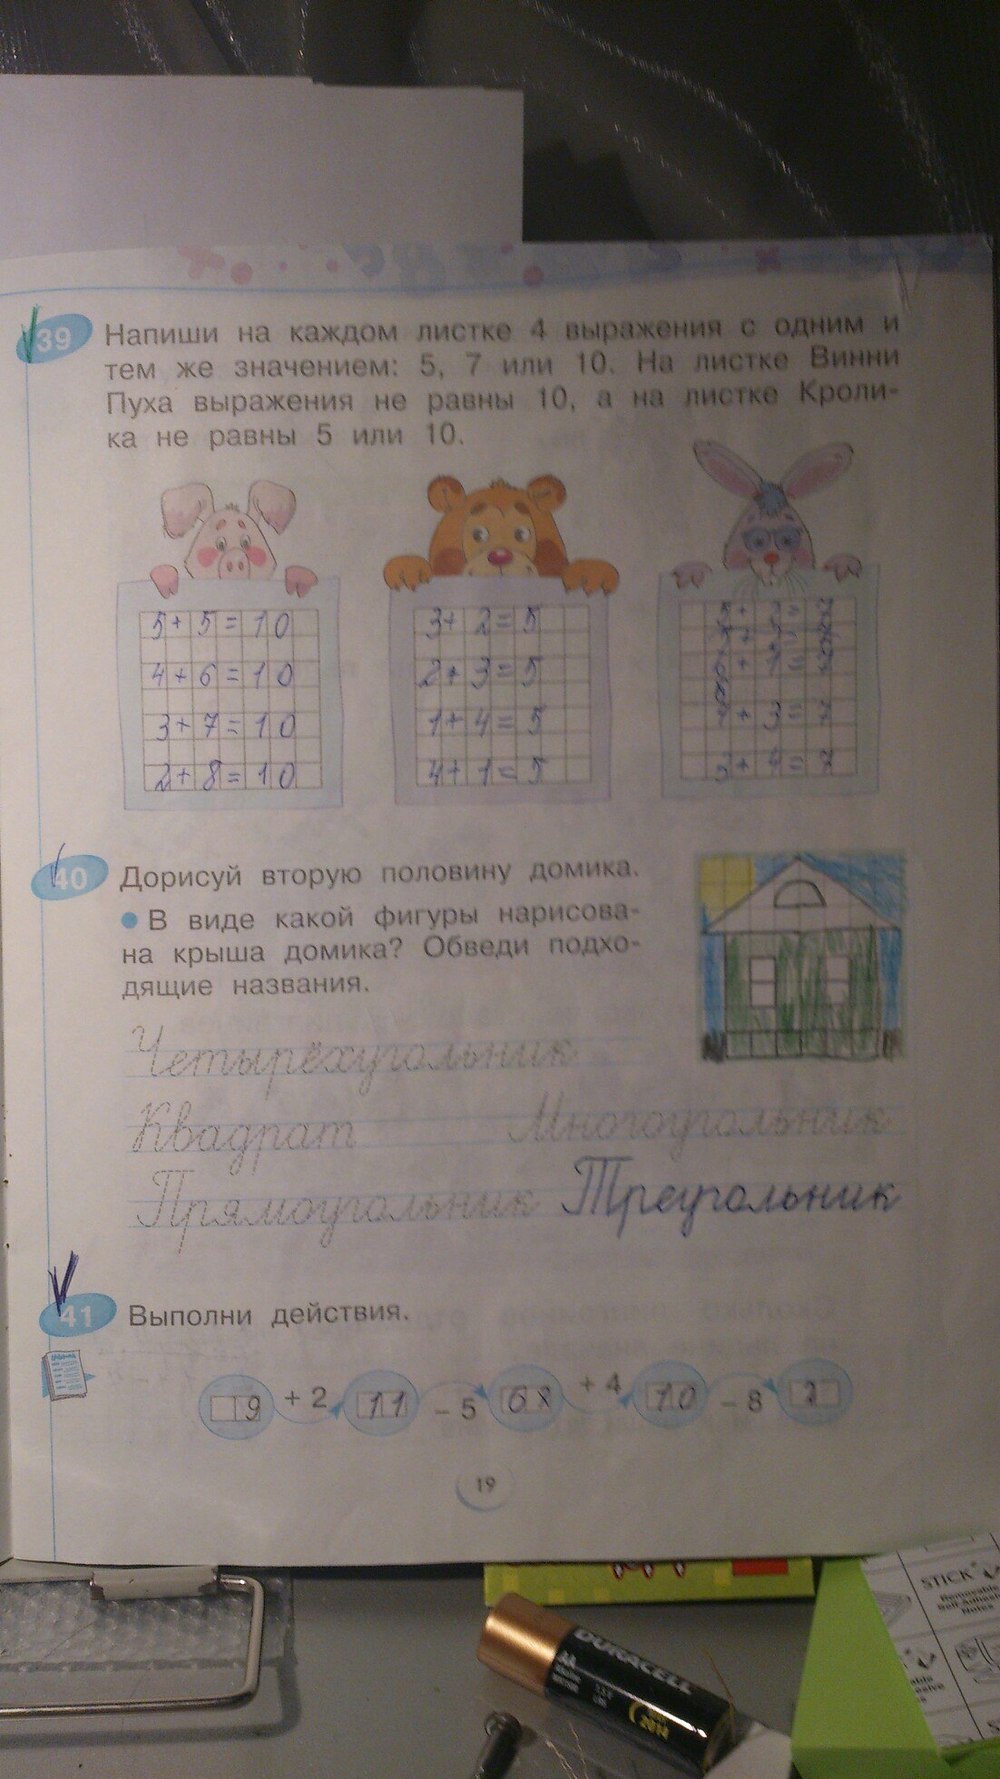 39 Напиши на каждом листке 4 выражения с одним и
тем же значением: 5, 7 или 10. На листке Винни
Пуха выражения не равны 10, а на листке Кроли-
ка не равны 5 или 10.
5+5=10
4+6=10
3+7=10
2+8=10
3+2=5
2+3=5
1+4=5
4+1=5
+ 1 =
+ 3 = 7
+ 4 = 7
40 Дорисуй вторую половину домика.
• В виде какой фигуры нарисова-
на крыша домика? Обведи подхо-
дящие названия.
Четырёхугольник
Квадрат Многоугольник
Прямоугольник Треугольник
41 Выполни действия.
9 + 2 11 - 5 6 + 4 10 - 8 2
19
DURACELL
AA
2014
STICK
Removable
Self-Adhesive
Notes